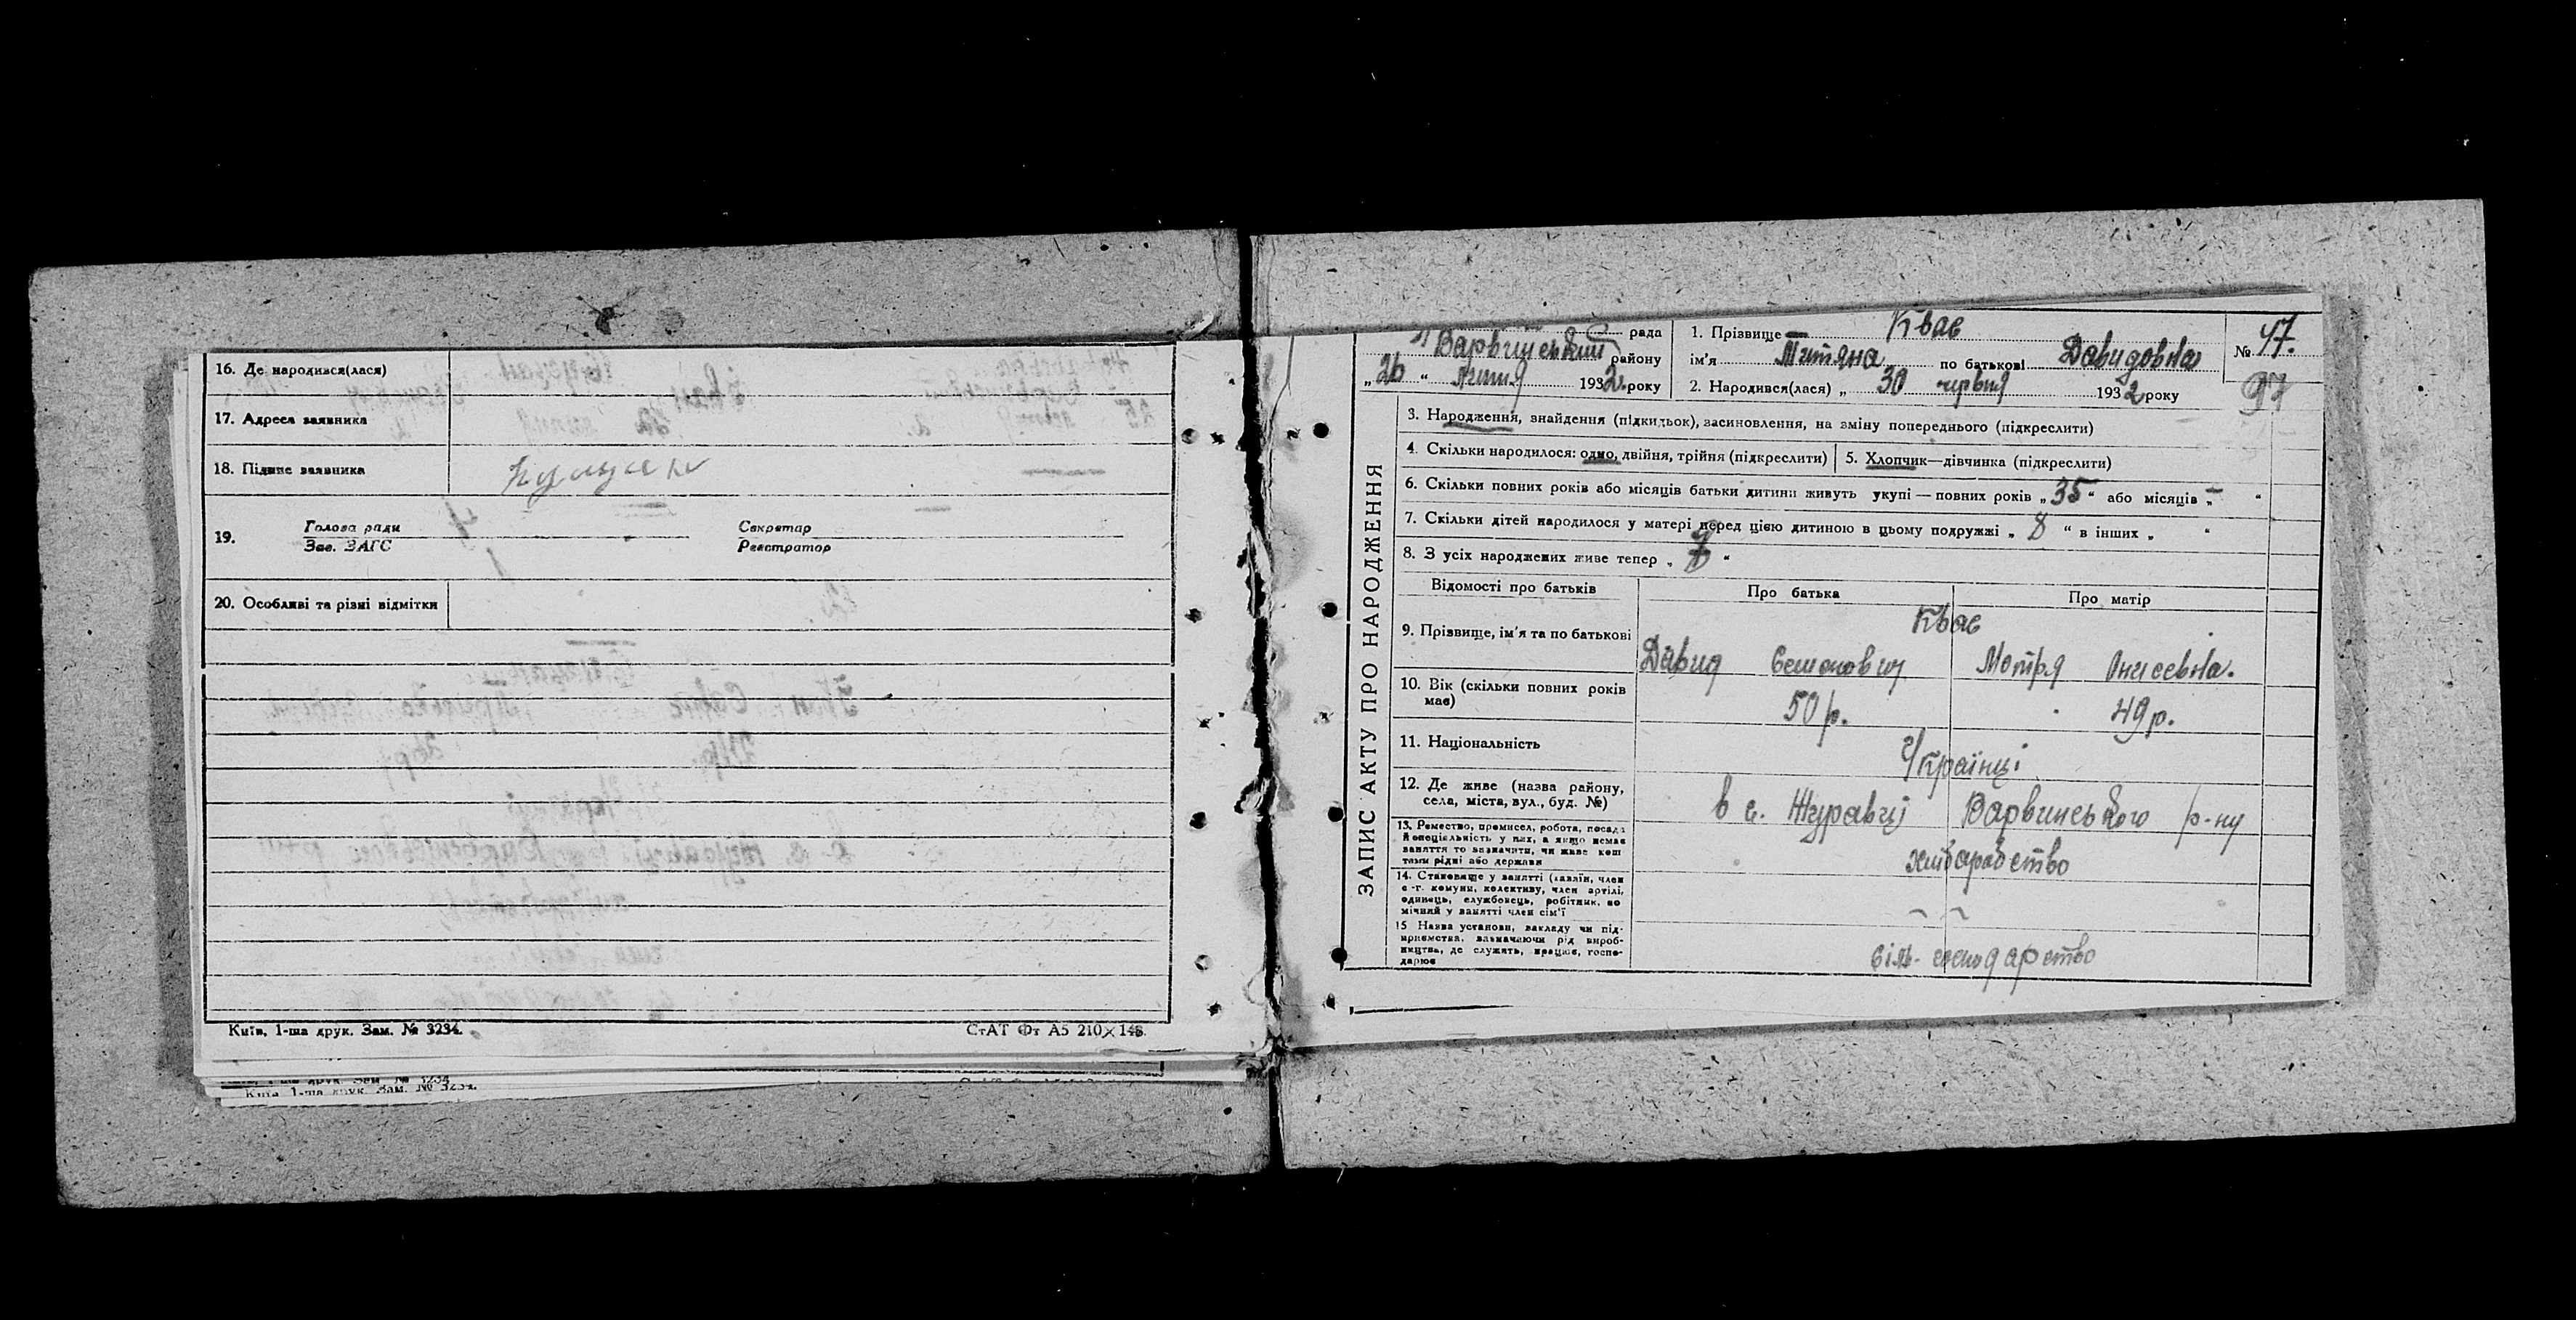 16. Де народився(лася)
17. Адреса заявника
18. Підпис заявника
19. Голова ради Секретар
Зав. ЗАГС Реєстратор
20. Особливі та різні відмітки
Київ, 1-ша друк. Зам. № 3234. СтАТ Фт А5 210×148.
Київ, 1-ша друк. Зам. № 3234.
ЗАПИС АКТУ ПРО НАРОДЖЕННЯ
рада
Варвинський району
„26“ липня 1932 року
1. Прізвище Квас
ім'я Титяна по батькові Давидовна
2. Народився(лася) „30 червня 1932 року
№ 47.
97
3. Народження, знайдення (підкидьок), засиновлення, на зміну попереднього (підкреслити)
4. Скільки народилося: одно, двійня, трійня (підкреслити) 5. Хлопчик—дівчинка (підкреслити)
6. Скільки повних років або місяців батьки дитини живуть укупі — повних років „35“ або місяців „-“
7. Скільки дітей народилося у матері перед цією дитиною в цьому подружжі „8“ в інших „ “
8. З усіх народжених живе тепер „ “
Відомості про батьків Про батька Про матір
Квас
9. Прізвище, ім'я та по батькові Давид Семенович Мотря Онисевна.
10. Вік (скільки повних років має) 50 р. 49 р.
11. Національність Українці
12. Де живе (назва району, села, міста, вул., буд. №) в с. Журавці Варвинського р-ну
13. Ремество, промисел, робота, посада й спеціяльність у них, а якщо немає заняття то зазначити, чи живе кош тами рідні або держави хліборобство
14. Становище у занятті (хазяїн, член с.-г. комуни, колективу, член артілі, одинець, службовець, робітник, по мічний у занятті член сім'ї
15 Назва установи, закладу чи під-
приємства, зазначаючи рід вироб-
ництва, де служить, працює, госпо-
дарює сіль-господарство